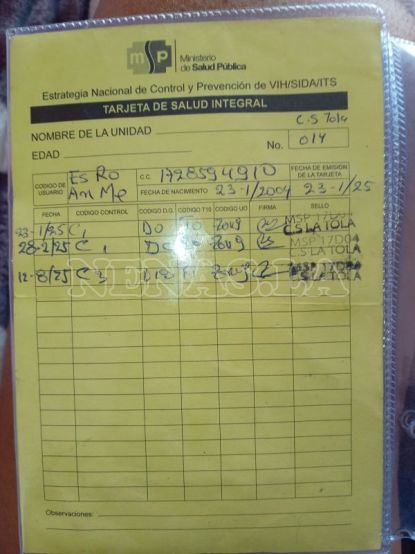 msp
Ministerio
de Salud Pública
Estrategia Nacional de Control y Prevención de VIH/SIDA/ITS
TARJETA DE SALUD INTEGRAL
C.S Tola
NOMBRE DE LA UNIDAD
No. 014
EDAD
CODIGO DE USUARIO Es Ro An Me
C.C. 1728594910
FECHA DE NACIMIENTO 23-1/2004
FECHA DE EMISION DE LA TARJETA 23-1/25
FECHA CODIGO CONTROL CODIGO D.G. CODIGO T10 CODIGO UO FIRMA SELLO
23-1/25 C1 MSP 17D04 C.S LA TOLA
28-2/25 C MSP 17D04 C.S LA TOLA
12-8/25 C3 MSP 17D04 C.S LA TOLA
NENAS.EA
Observaciones: